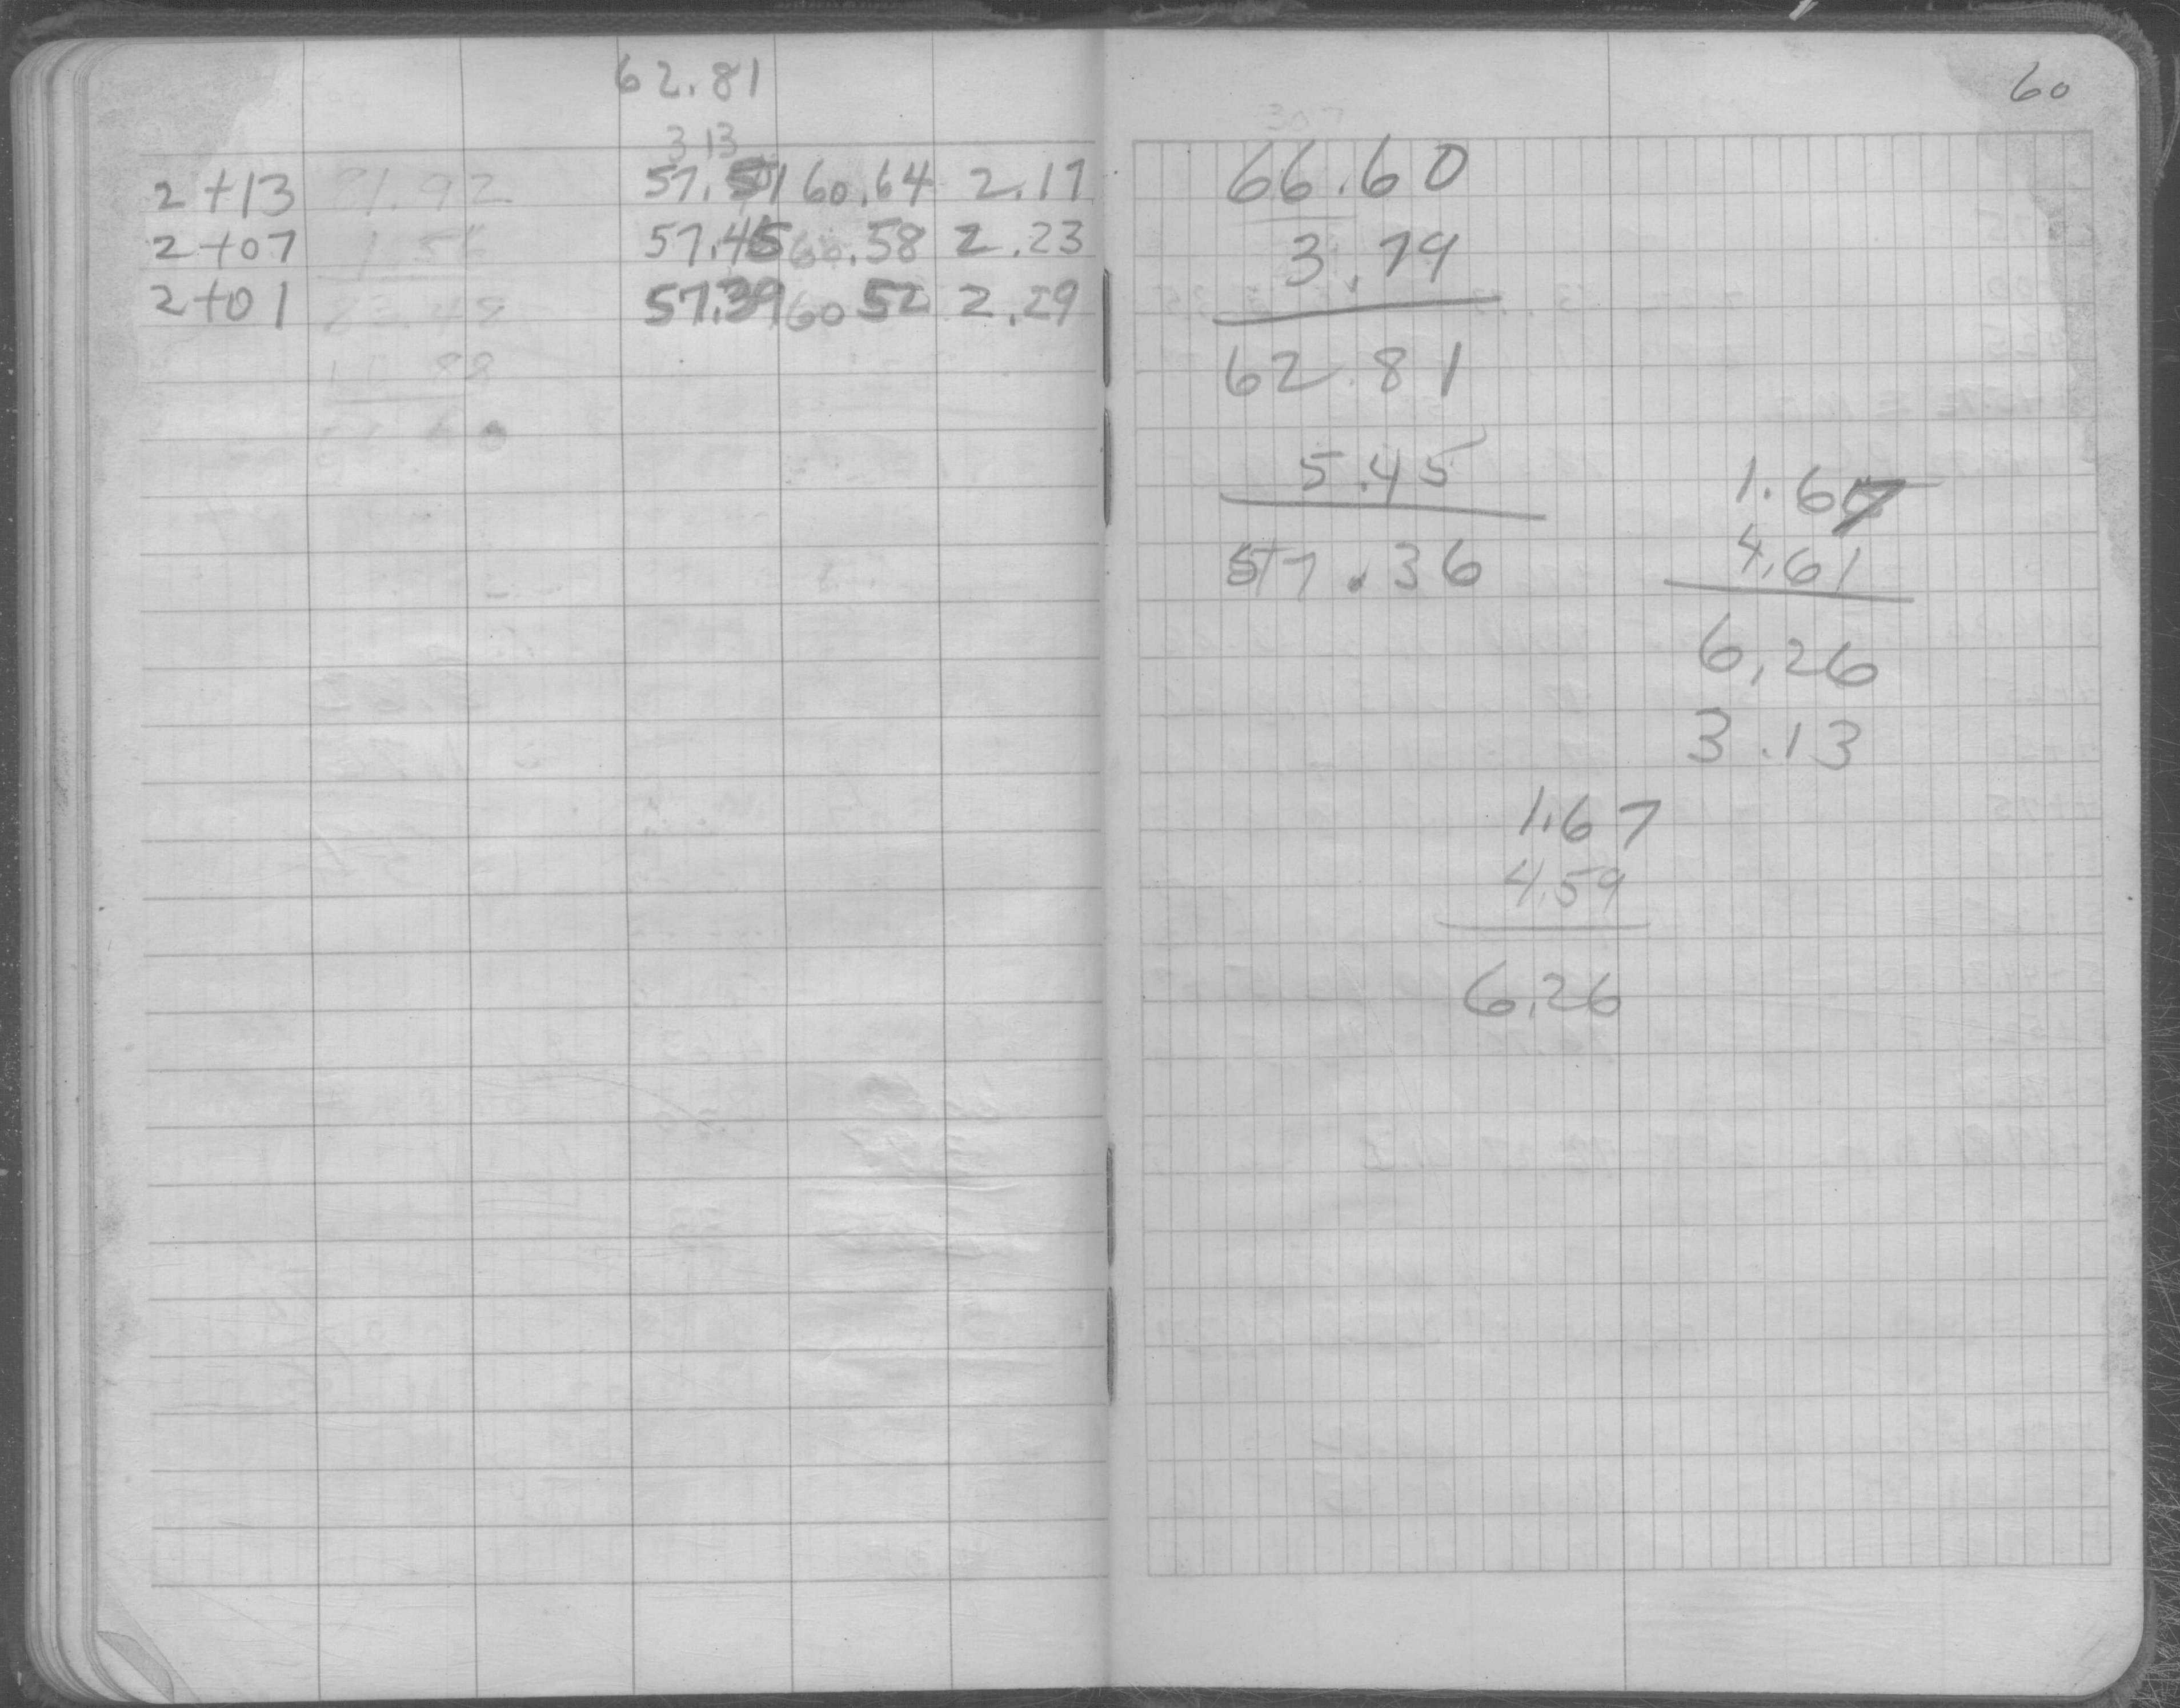 62.81
3.13
2+13 81.92 57.51 60.64 2.17
2+07 1.56 57.45 60.58 2.23
2+01 83.48 57.39 60 52 2.29
60
66.60
3.79
62.81
5.45
57.36
1.67
4.61
6.26
3.13
1.67
4.59
6.26